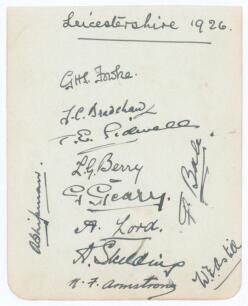 Leicestershire 1926.
G.H.S. Fowke.
J.C. Bradshaw
T.E. Sidwell
L.G. Berry
G. Geary.
A. Lord.
A. Skelding
N. F. Armstrong
A. Shipman.
F. Bale.
W.E. Astill